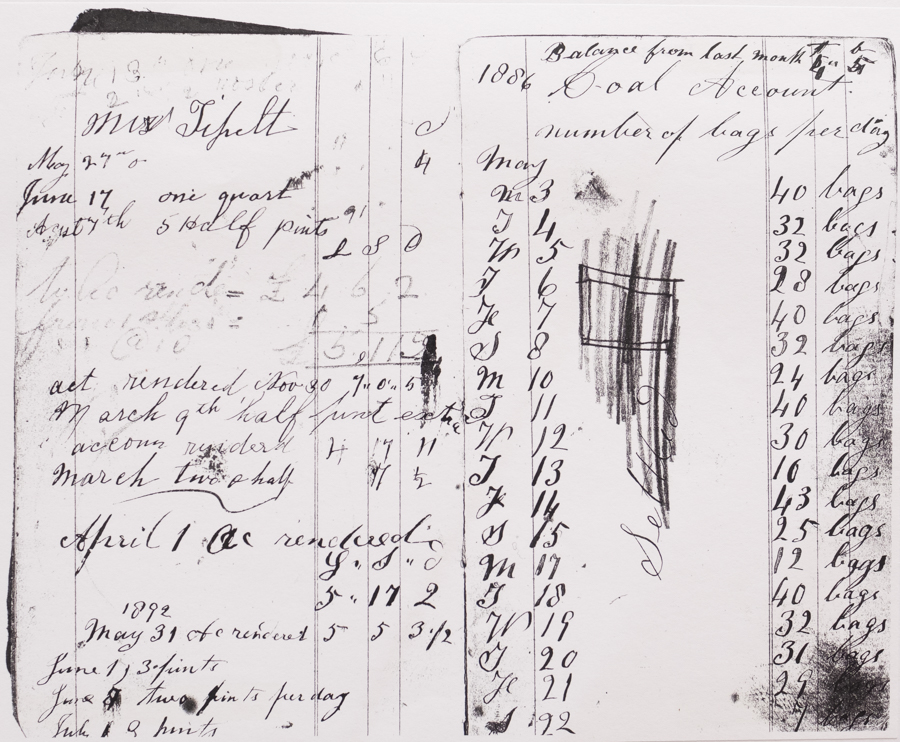 Mrs Tipelt
d
May 27 4
June 17 one quart
Agust 7th 5 Half pints
91
£ S D
= £ 4 6 2
5
5 11 5
act rendered Nov 30 7 " 0 " 5
March 9th half pint
accoun renderd 4 17 11
March two half 7 ½
April 1 ac rendered
£ " S " d
5 " 17 2
1892
May 31 Ac renderet 5 5 3 1/2
June 1, 3 pints
June 8 two pints per day
July 1 2 pints
Balance from last month
1886 Coal Account.
number of bags per day
May
M 3 40 bags
T 4 32 bags
W 5 32 bags
T 6 28 bags
F 7 40 bags
S 8 32 bags
M 10 24 bags
T 11 40 bags
W 12 30 bags
T 13 10 bags
F 14 43 bags
S 15 25 bags
M 17 12 bags
T 18 40 bags
W 19 32 bags
T 20 31 bags
F 21 29 bags
S 22 bags
Settled